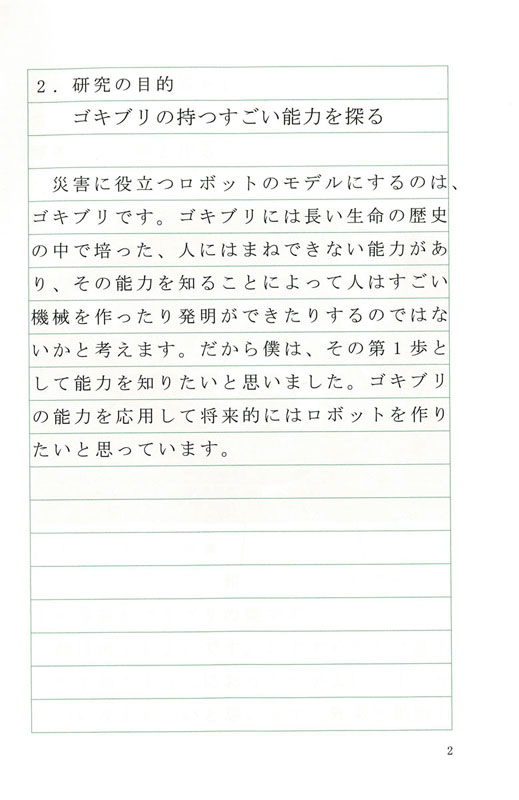 2．研究の目的
ゴキブリの持つすごい能力を探る
災害に役立つロボットのモデルにするのは、
ゴキブリです。ゴキブリには長い生命の歴史
の中で培った、人にはまねできない能力があ
り、その能力を知ることによって人はすごい
機械を作ったり発明ができたりするのではな
いかと考えます。だから僕は、その第１歩と
して能力を知りたいと思いました。ゴキブリ
の能力を応用して将来的にはロボットを作り
たいと思っています。
2